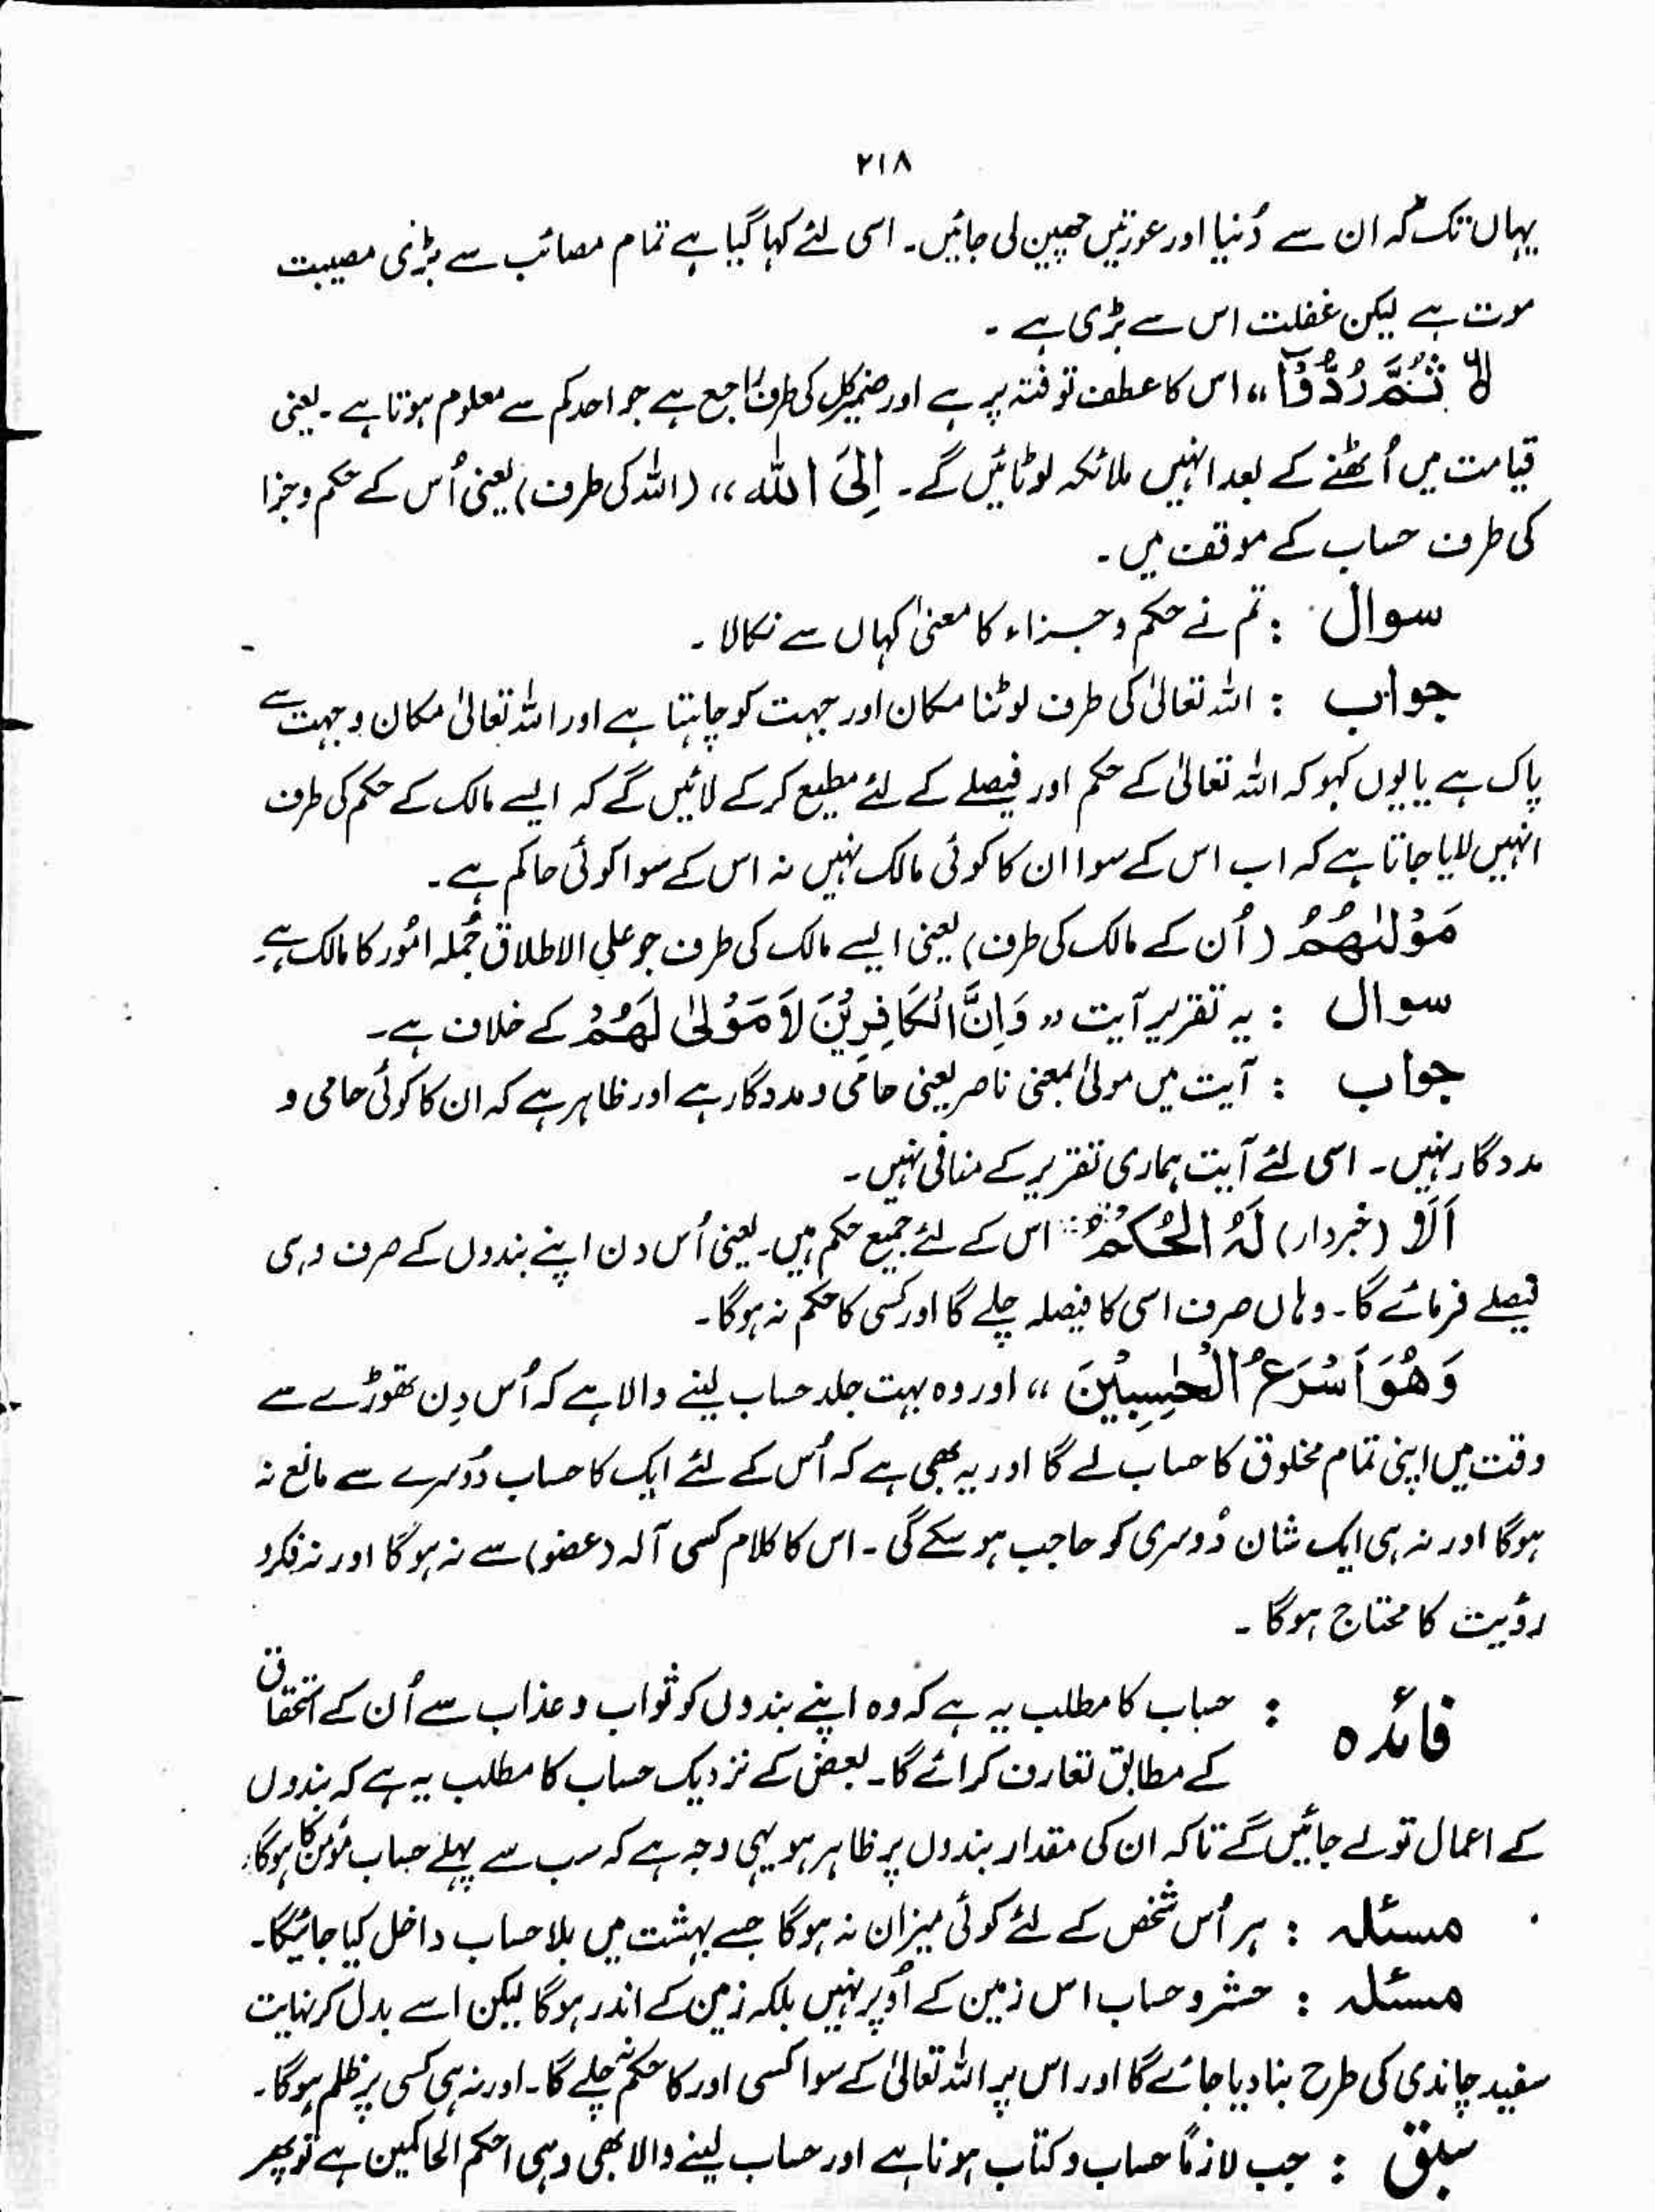 ۲۱۸
یہاں تک کہ ان سے دُنیا اور عورتیں چھین لی جائیں۔ اسی لئے کہا گیا ہے تمام مصائب سے بڑی مصیبت
موت ہے لیکن غفلت اس سے بڑی ہے ۔
ثُمَّ رُدُّوْٓا ،، اس کا عطف توفتہ پر ہے اور ضمیر کل کی طرف راجع ہے جو احدکم سے معلوم ہوتا ہے ۔ یعنی
قیامت میں اُٹھنے کے بعد انہیں ملائکہ لوٹائیں گے۔ اِلَی اللہ ،، (اللہ کی طرف) یعنی اُس کے حکم و جزا
کی طرف حساب کے موقف میں ۔
سوال : تم نے حکم و جزاء کا معنیٰ کہاں سے نکالا ۔
جواب : اللہ تعالیٰ کی طرف لوٹنا مکان اور جہت کو چاہتا ہے اور اللہ تعالیٰ مکان و جہت سے
پاک ہے یا یوں کہو کہ اللہ تعالیٰ کے حکم اور فیصلے کے لئے مطیع کر کے لائیں گے کہ ایسے مالک کے حکم کی طرف
انہیں لایا جاتا ہے کہ اب اس کے سوا ان کا کوئی مالک نہیں نہ اس کے سوا کوئی حاکم ہے ۔
مَوْلٰىهُمُ (اُن کے مالک کی طرف) یعنی ایسے مالک کی طرف جو علی الاطلاق جُملہ امُور کا مالک ہے۔
سوال : یہ تقریر آیت ,, وَاِنَّ الْكَافِرِيْنَ لَا مَوْلٰى لَهُمْ کے خلاف ہے۔
جواب : آیت میں مولیٰ بمعنی ناصر یعنی حامی و مددگار ہے اور ظاہر ہے کہ ان کا کوئی حامی و
مددگار نہیں ۔ اسی لئے آیت ہماری تقریر کے منافی نہیں۔
اَلَا (خبردار) لَهُ الْحُكْمُ اس کے لئے جمیع حکم ہیں۔ یعنی اُس دن اپنے بندوں کے صرف وہی
فیصلے فرمائے گا۔ وہاں صرف اسی کا فیصلہ چلے گا اور کسی کا حکم نہ ہوگا۔
وَهُوَ اَسْرَعُ الْحٰسِبِيْنَ ،، اور وہ بہت جلد حساب لینے والا ہے کہ اُس دِن تھوڑے سے
وقت میں اپنی تمام مخلوق کا حساب لے گا اور یہ بھی ہے کہ اُس کے لئے ایک کا حساب دُوسرے سے مانع نہ
ہوگا اور نہ ہی ایک شان دُوسری کو حاجب ہو سکے گی ۔ اس کا کلام کسی آلہ (عضو) سے نہ ہو گا اور نہ فکر و
رؤیت کا محتاج ہوگا ۔
فائدہ : حساب کا مطلب یہ ہے کہ وہ اپنے بندوں کو ثواب و عذاب سے اُن کے استحقاق
کے مطابق تعارف کرائے گا۔ بعض کے نزدیک حساب کا مطلب یہ ہے کہ بندوں
کے اعمال تولے جائیں گے تاکہ ان کی مقدار بندوں پر ظاہر ہو یہی وجہ ہے کہ سب سے پہلے حساب مؤمن کا ہوگا۔
مسئلہ : ہر اُس شخص کے لئے کوئی میزان نہ ہوگا جسے بہشت میں بلا حساب داخل کیا جائیگا۔
مسئلہ : حشر و حساب اس زمین کے اُوپر نہیں بلکہ زمین کے اندر ہوگا لیکن اسے بدل کر نہایت
سفید چاندی کی طرح بنا دیا جائے گا اور اس پر اللہ تعالیٰ کے سوا کسی اور کا حکم نہ چلے گا۔ اور نہ ہی کسی پر ظلم ہوگا۔
سبق : جب لازماً حساب و کتاب ہونا ہے اور حساب لینے والا بھی وہی احکم الحاکمین ہے تو پھر